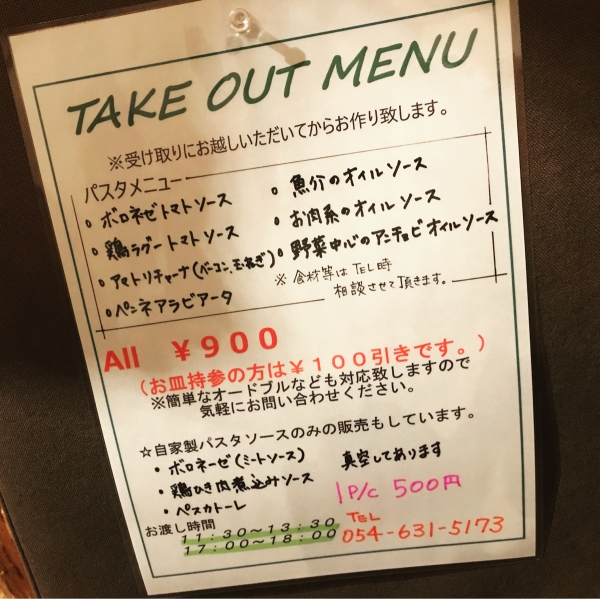 TAKE OUT MENU
※受け取りにお越しいただいてからお作り致します。
パスタメニュー
。ボロネゼトマトソース
。鶏ラグートマトソース
。アマトリチャーナ(ベーコン、玉ねぎ)
。ペンネアラビアータ
。魚介のオイルソース
。お肉系のオイルソース
。野菜中心のアンチョビオイルソース
※食材等はTEL時
相談させて頂きます。
All ¥900
(お皿持参の方は¥100引きです。)
※簡単なオードブルなども対応致しますので
気軽にお問い合わせください。
☆自家製パスタソースのみの販売もしています。
・ボロネーゼ(ミートソース)
・鶏ひき肉煮込みソース
・ペスカトーレ
真空してあります
1P/c 500円
お渡し時間
11:30~13:30
17:00~18:00
TEL
054-631-5173